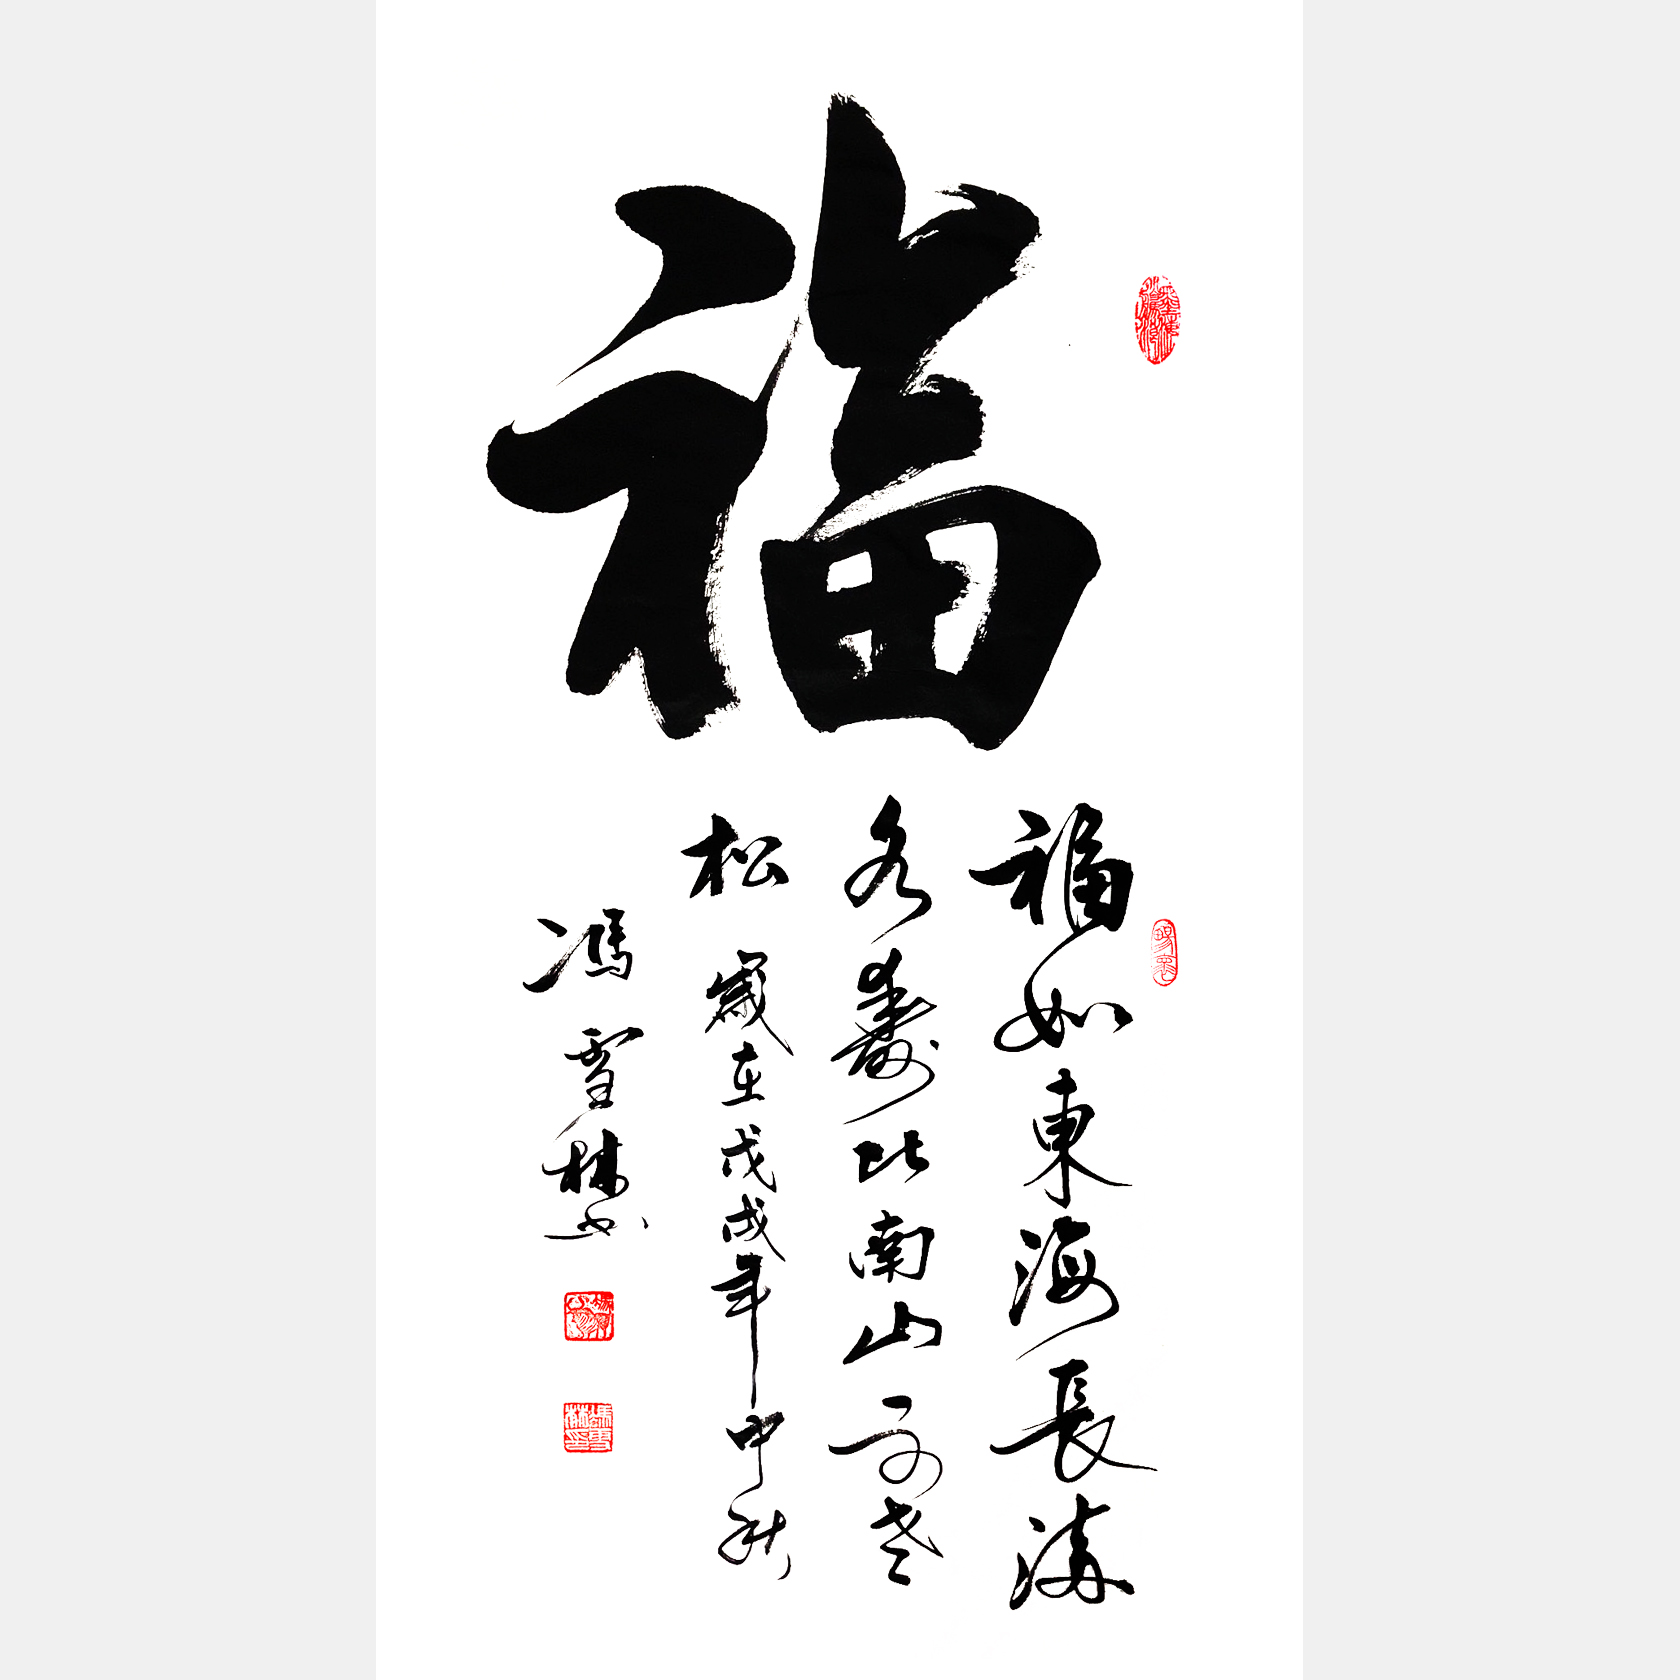 福
福如東海長流
水壽比南山不老
松 歲在戊戌年中秋
馮雪林書